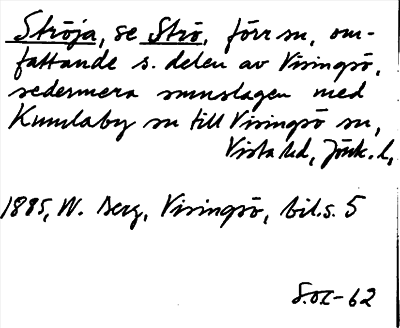 Ströja, se Strö, förr sn, om-
fattande s. delen av Visingsö,
sedermera sunslagen med
Kumlaby sn till Visingsö sn,
Vista hd, Jönk. l,
1885, W. Berg, Visingsö, bil. s. 5
S.OL-62